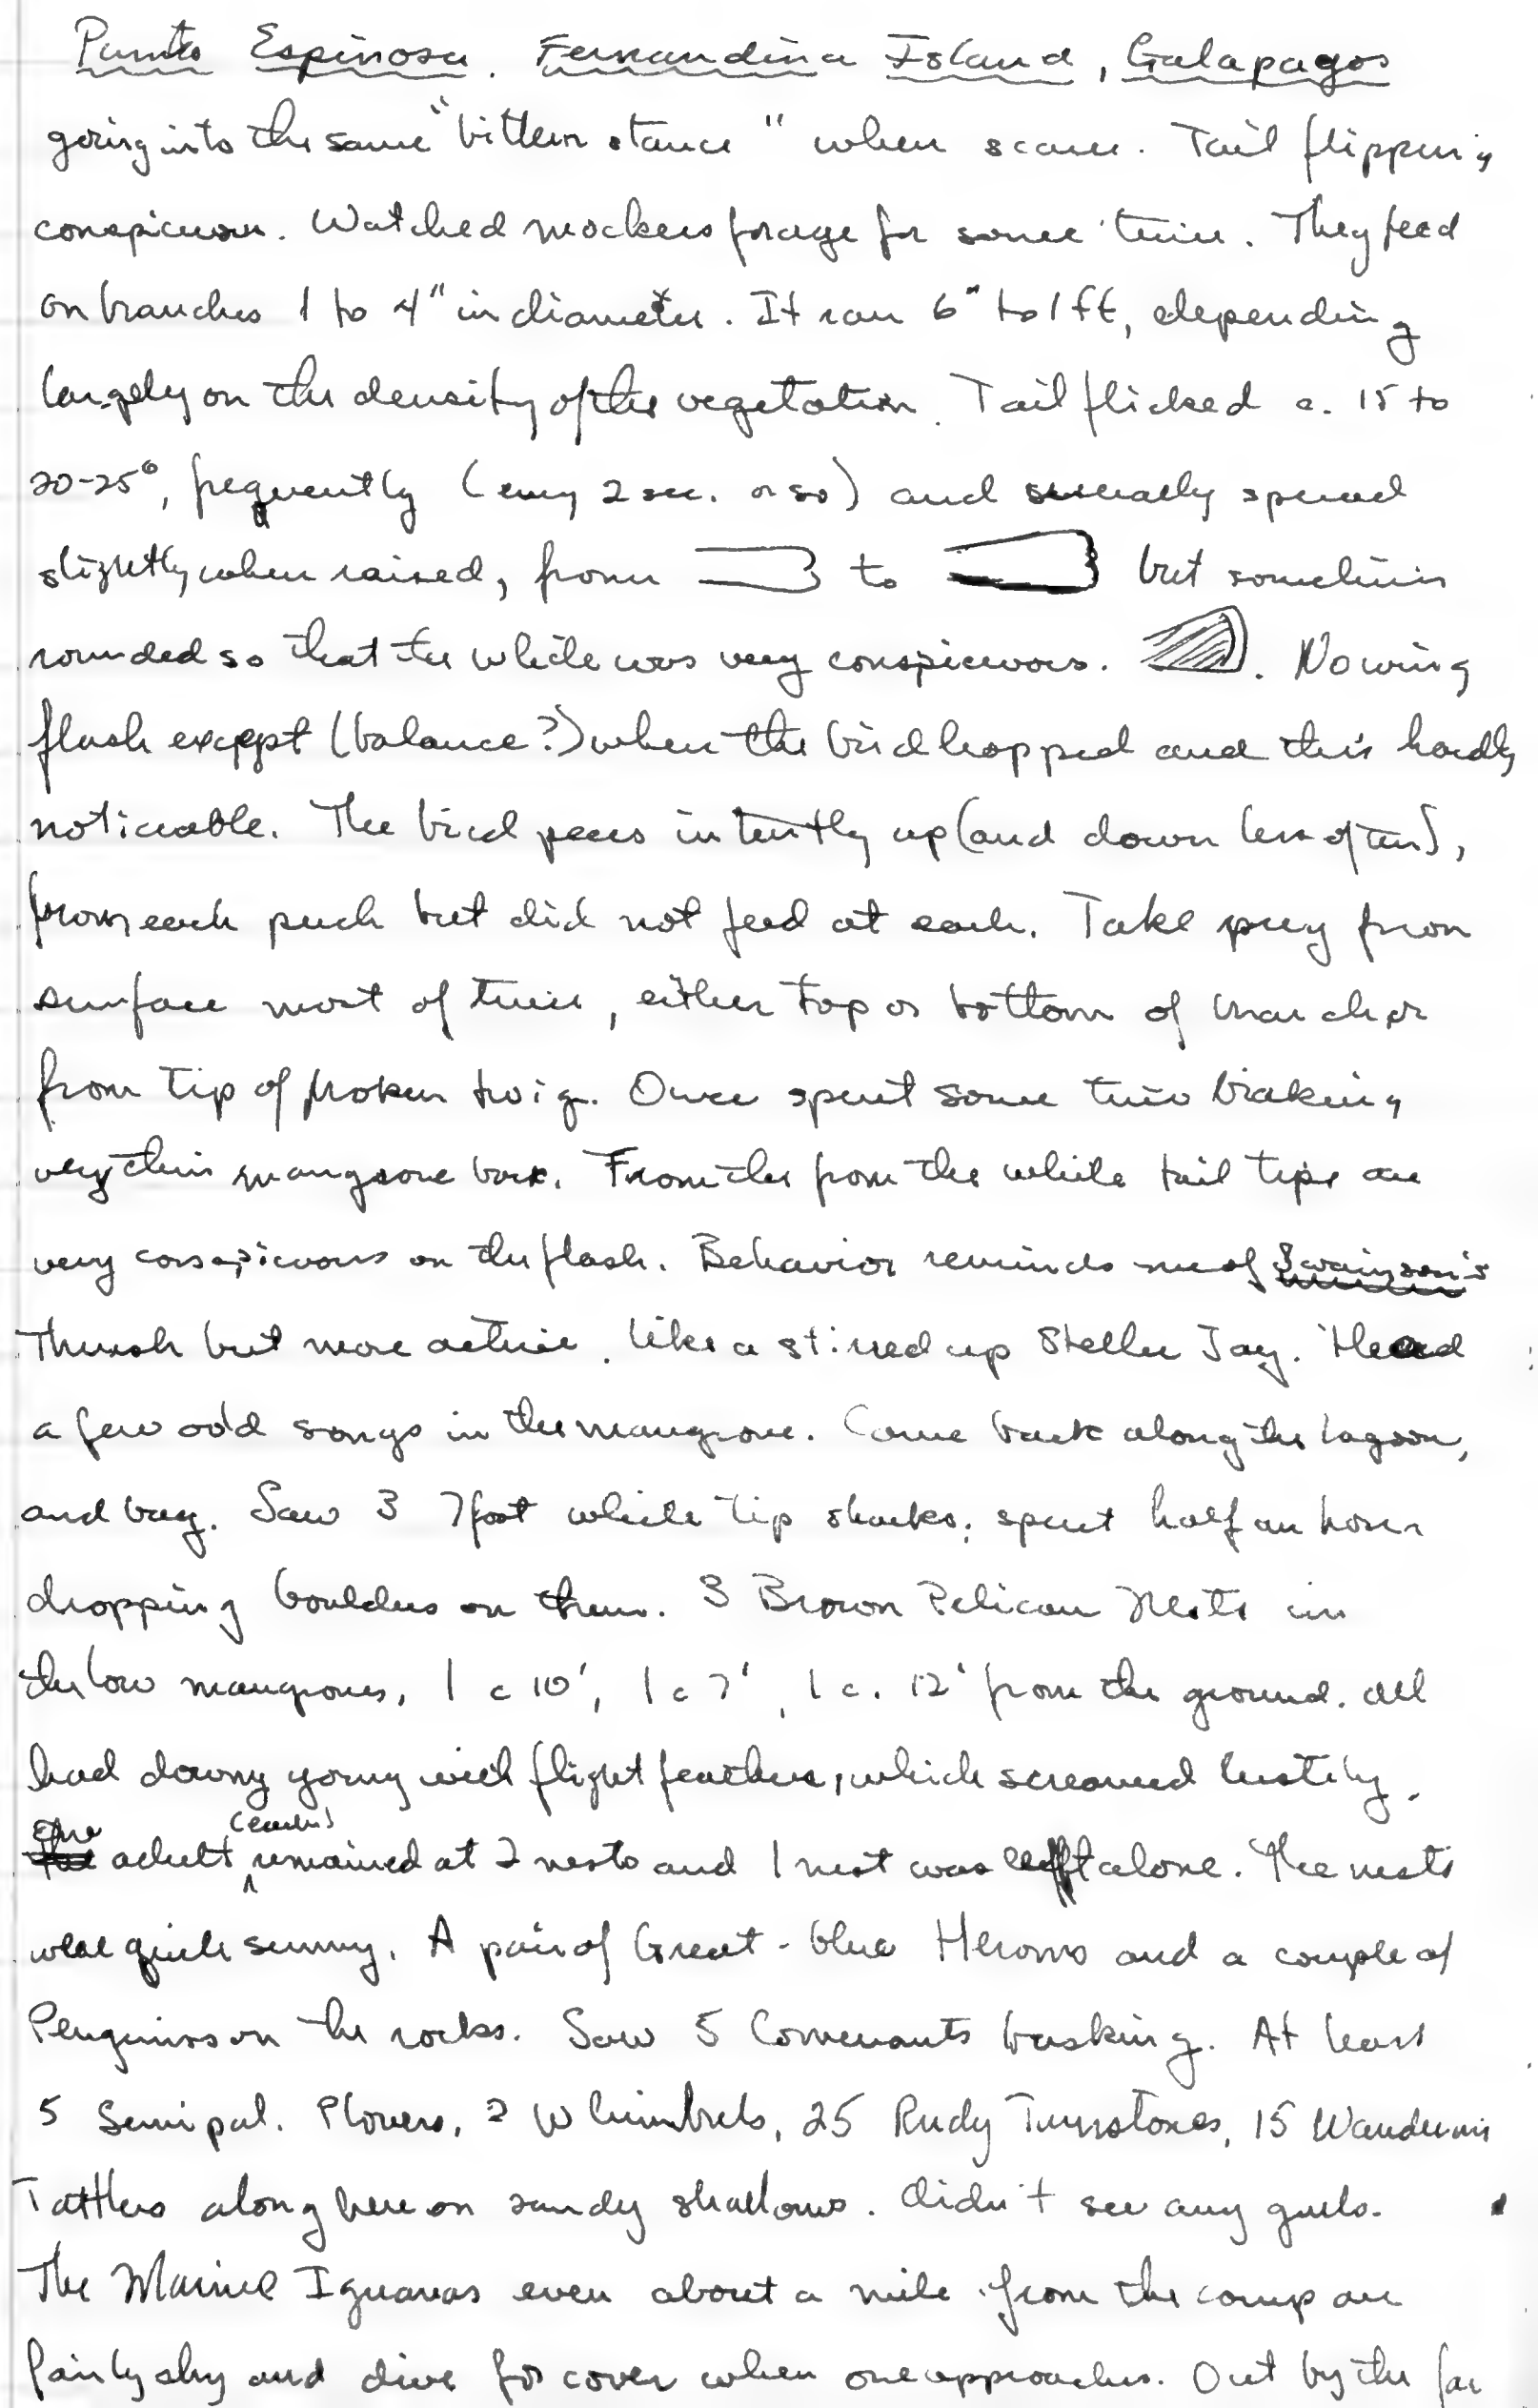 Punta Espinosa. Fernandina Island, Galapagos
going into the same "bittern stance" when scare. Tail flipping
conspicuous. Watched mockers forage for some time. They feed
on branches 1 to 4" in diameter. It ran 6" to 1 ft, depending
largely on the density of the vegetation. Tail flicked c. 15 to
20-25°, frequently (every 2 sec. or so) and usually spread
slightly when raised, from to but sometimes
rounded so that the white was very conspicuous. . No wing
flash except (balance?) when the bird hopped and this hardly
noticeable. The bird peers intently up (and down less often),
from each perch but did not feed at each. Take prey from
surface most of time, either top or bottom of branch or
from tip of broken twig. Once spent some time breaking
very thin mangrove bark. From the front the white tail tips are
very conspicuous on the flash. Behavior reminds me of Swainson's
Thrush but more active. like a stirred up Steller Jay. Heard
a few odd songs in the mangrove. Came back along the lagoon,
and bay. Saw 3 7 foot white tip sharks; spent half an hour
dropping boulders on them. 3 Brown Pelican Nests in
the low mangroves, 1 c 10', 1 c 7', 1 c. 12' from the ground. All
had downy young with flight feathers, which screamed lustily.
One adult (each) remained at 2 nests and 1 nest was left alone. The nests
were quite sunny. A pair of Great-blue Herons and a couple of
Penguins on the rocks. Saw 5 Cormorants basking. At least
5 Semipal. Plovers, 2 Whimbrels, 25 Rudy Turnstones, 15 Wandering
Tattlers along here on sandy shallows. Didn't see any gulls.
The Marine Iguanas even about a mile from the camp are
fairly shy and dive for cover when one approaches. Out by the far